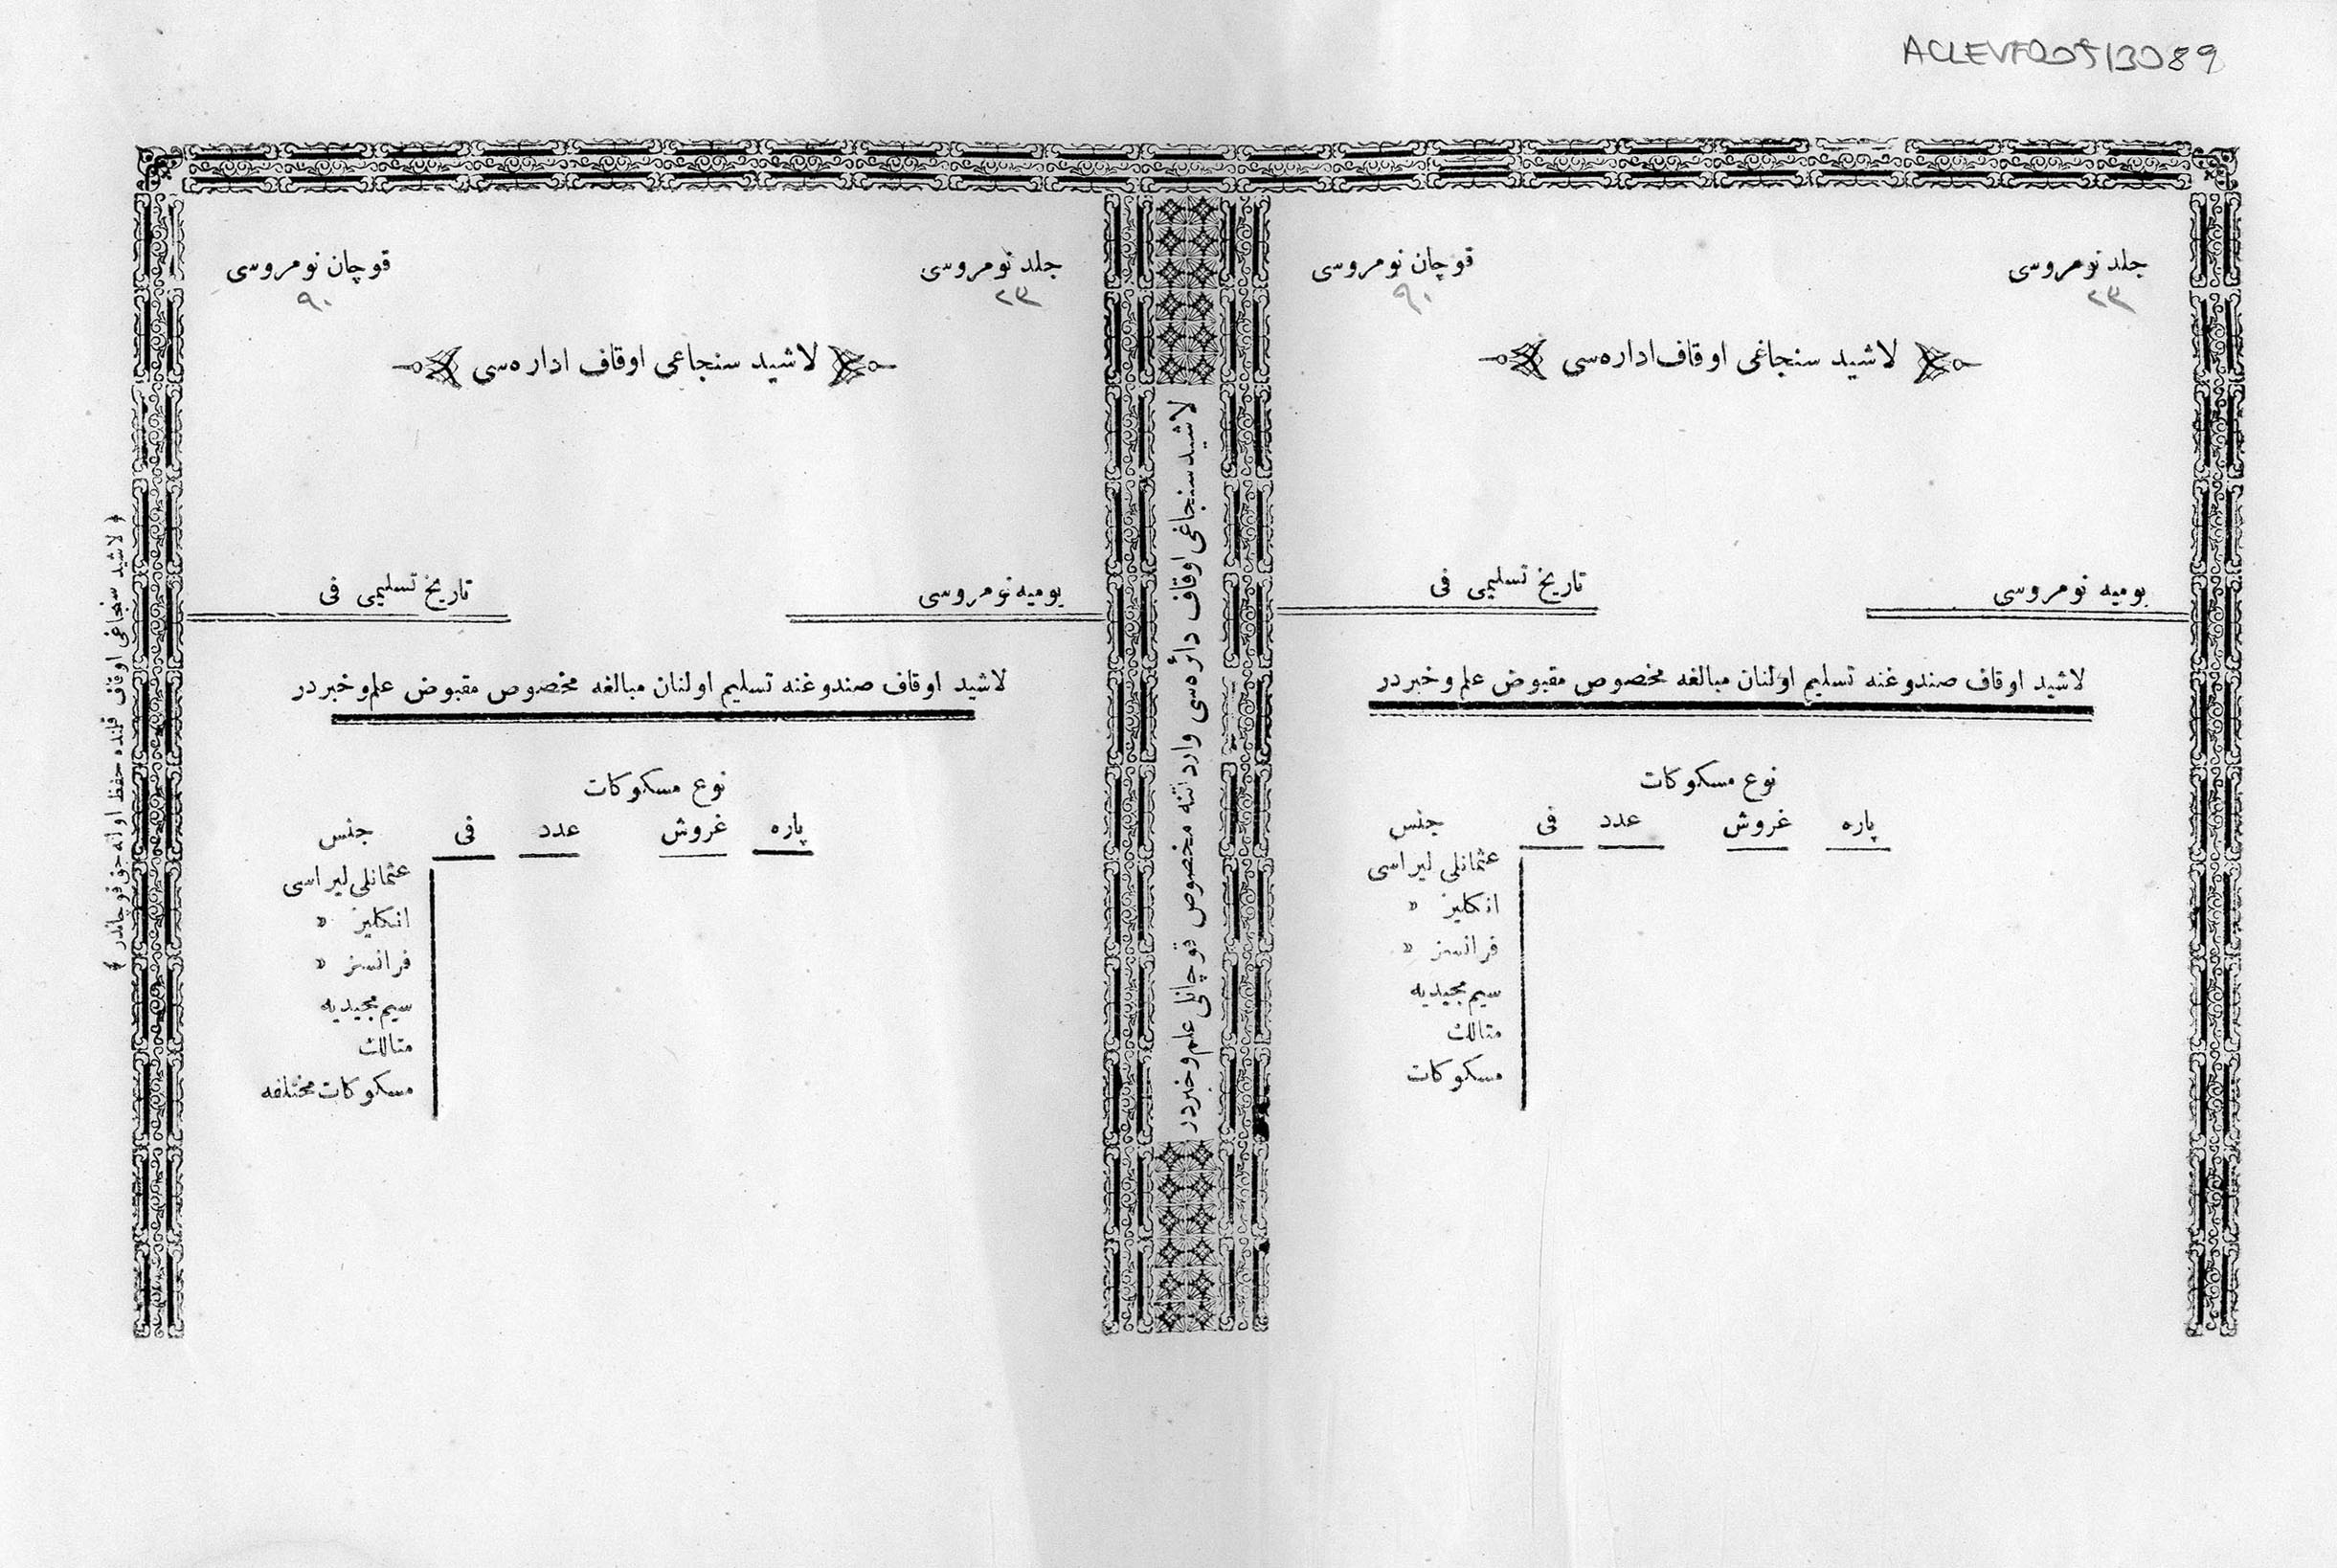 ACLEVF00513089
جلد نومروسی
٢٣
قوچان نومروسی
٩٠
لاشید سنجاغی اوقاف اداره‌سی
یومیه نومروسی
تاریخ تسلیمی فی
لاشید اوقاف صندوغنه تسلیم اولنان مبالغه مخصوص مقبوض علم و خبردر
نوع مسكوكات
پاره غروش عدد فی جنس
عثمانلی لیراسی
انكلیز »
فرانسز »
سیم مجیدیه
متالك
مسكوكات
لاشید سنجاغی اوقاف دائره‌سی وارداتنه مخصوص قوچانلی علم و خبردر
جلد نومروسی
٢٣
قوچان نومروسی
٩٠
لاشید سنجاغی اوقاف اداره‌سی
یومیه نومروسی
تاریخ تسلیمی فی
لاشید اوقاف صندوغنه تسلیم اولنان مبالغه مخصوص مقبوض علم و خبردر
نوع مسكوكات
پاره غروش عدد فی جنس
عثمانلی لیراسی
انكلیز »
فرانسز »
سیم مجیدیه
متالك
مسكوكات مختلفه
﴿ لاشید سنجاغی اوقاف قلنده حفظ اوله‌جق قوچاندر ﴾